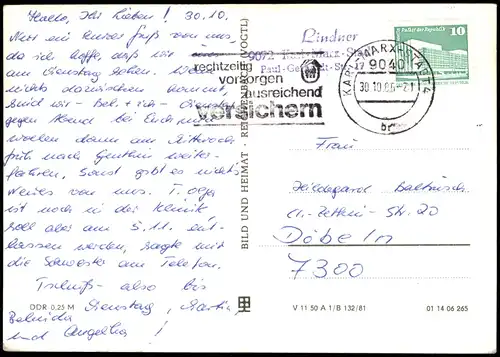 Hallo, Ihr Lieben! 30.10.
Nur ein kurzer Gruß von uns,
da ich hoffe, daß wir uns
am Dienstag sehen. Wenn
nichts dazwischen kommt,
sind wir - + ich - Dienstag
gegen Abend bei Euch und
wollen dann am Mittwoch
früh nach weiter-
fahren. Sonst gibt es nichts
Neues von uns. T. Olga
ist noch in der Klinik,
soll aber am 5.11. ent-
lassen werden, sagte mir
die Schwester am Telefon.
Tschüß - also bis
Dienstag, Martin,
Belinda
und Angelika!
DDR 0,25 M
BILD UND HEIMAT · REICHENBACH (VOGTL)
Lindner
9072 Karl-Marx-Stadt
Paul-Gerhardt-Str.
rechtzeitig
vorsorgen
ausreichend
versichern
KARL-MARX-STADT 4
9040
30.10.86-21
br
Palast der Republik
10
DDR
Frau
Hildegard
Cl.-Zetkin-Str. 20
Döbeln
7300
V 11 50 A 1/B 132/81
01 14 06 265